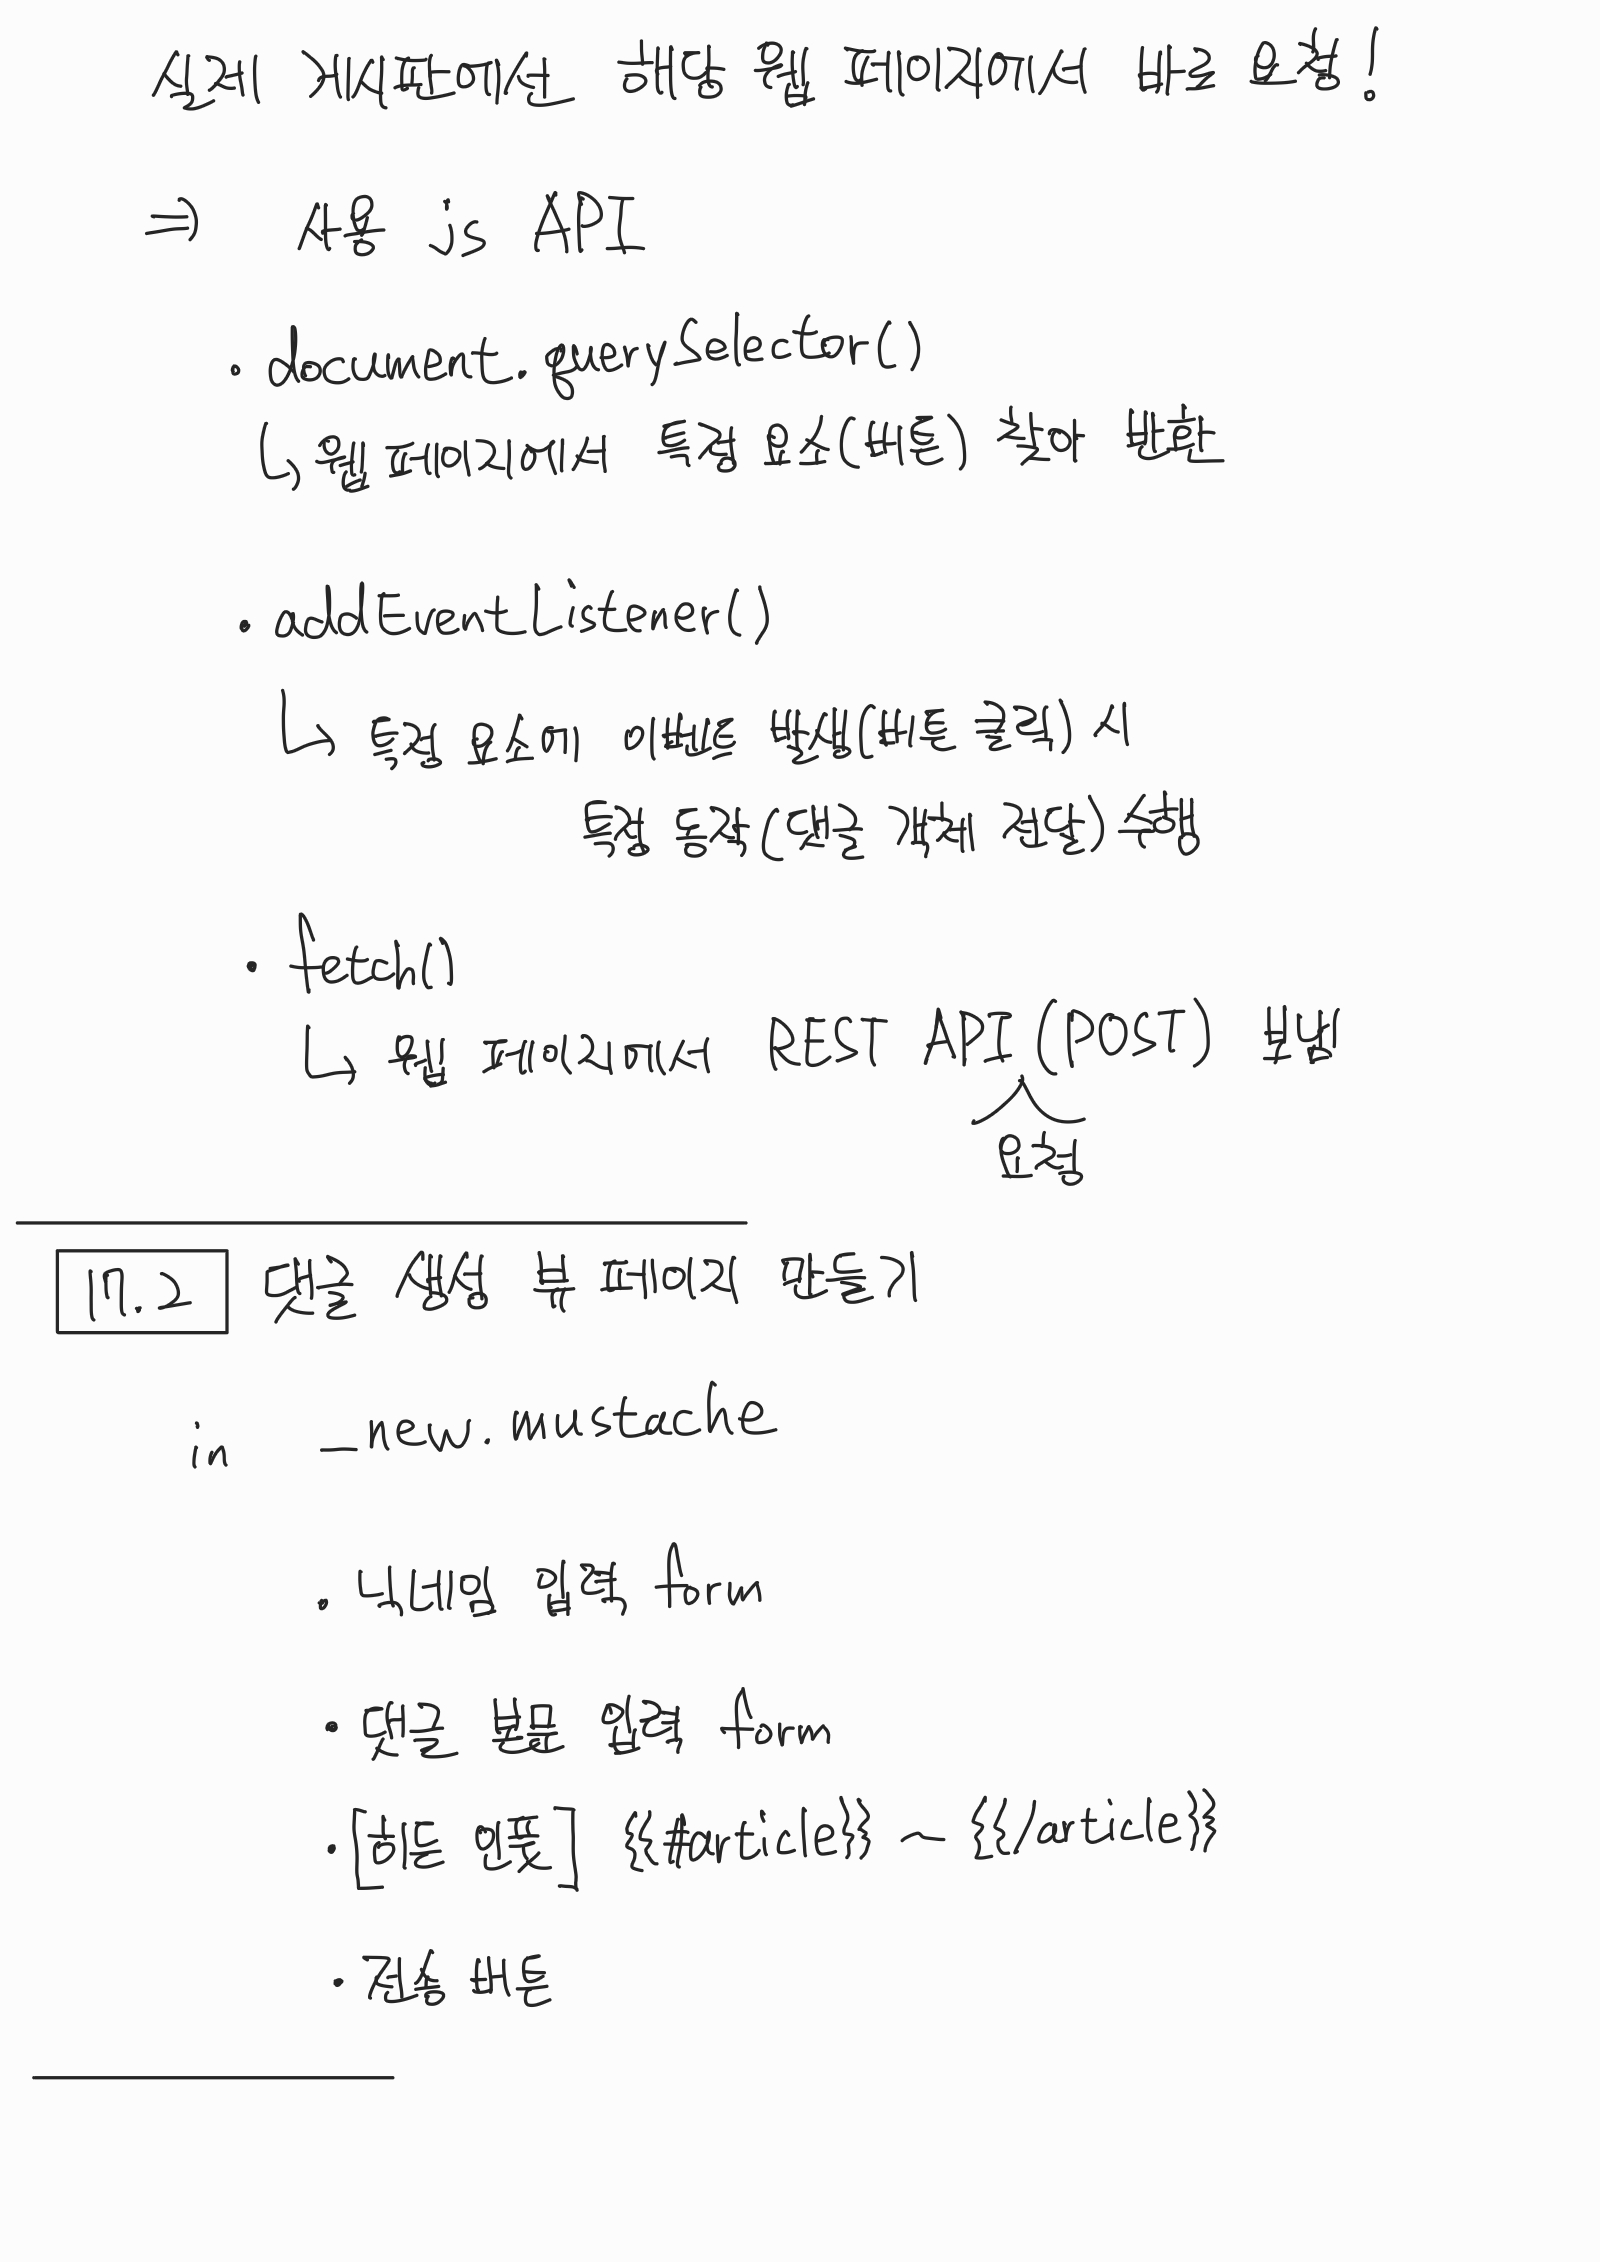 실제 게시판에선 해당 웹 페이지에서 바로 요청!
⇒ 사용 js API
· document.querySelector()
↳ 웹 페이지에서 특정 요소(버튼) 찾아 반환
· addEventListener()
↳ 특정 요소에 이벤트 발생(버튼 클릭) 시
특정 동작(댓글 객체 전달) 수행
· fetch()
↳ 웹 페이지에서 REST API (POST) 보냄
요청
17.2 댓글 생성 뷰 페이지 만들기
in _new.mustache
· 닉네임 입력 form
· 댓글 본문 입력 form
· [히든 인풋] {{#article}} ~ {{/article}}
· 전송 버튼